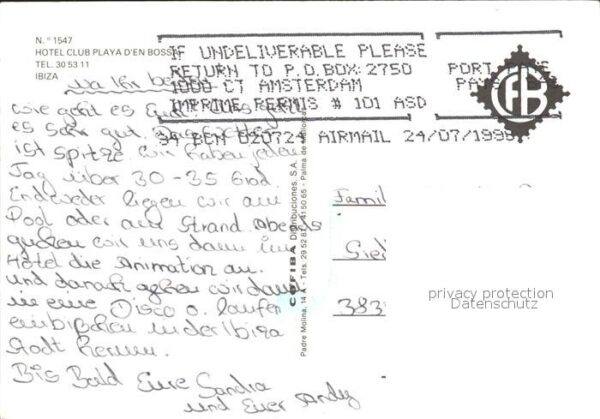 N.º 1547
HOTEL CLUB PLAYA D'EN BOSSA
TEL. 30 53 11
IBIZA
IF UNDELIVERABLE PLEASE
RETURN TO P.O.BOX:2750
1000 CT AMSTERDAM
IMPRIME PERMIS # 101 ASD
PORT
94 BCN 020724 AIRMAIL 24/07/199
CFB
Na Ihr
wie geht es Euch Uns
es sehr gut.
ist spitze wir haben jeden
Tag über 30-35 Grad.
Endweder liegen wir am
Pool oder am Strand. Abends
gucken wir uns dann im
Hotel die Animation an.
und danach gehen wir dann
in eine Disco o. laufen
ein bißchen in der Ibiza
Stadt herum.
Bis Bald Eure Sandra
und Euer Andy
COFIBA Distribuciones, S.A.
Padre Molina, 14 A - Tels. 29 52 82 - 4150 65 - Palma de Mallorca
Famil
Siel
383
privacy protection
Datenschutz